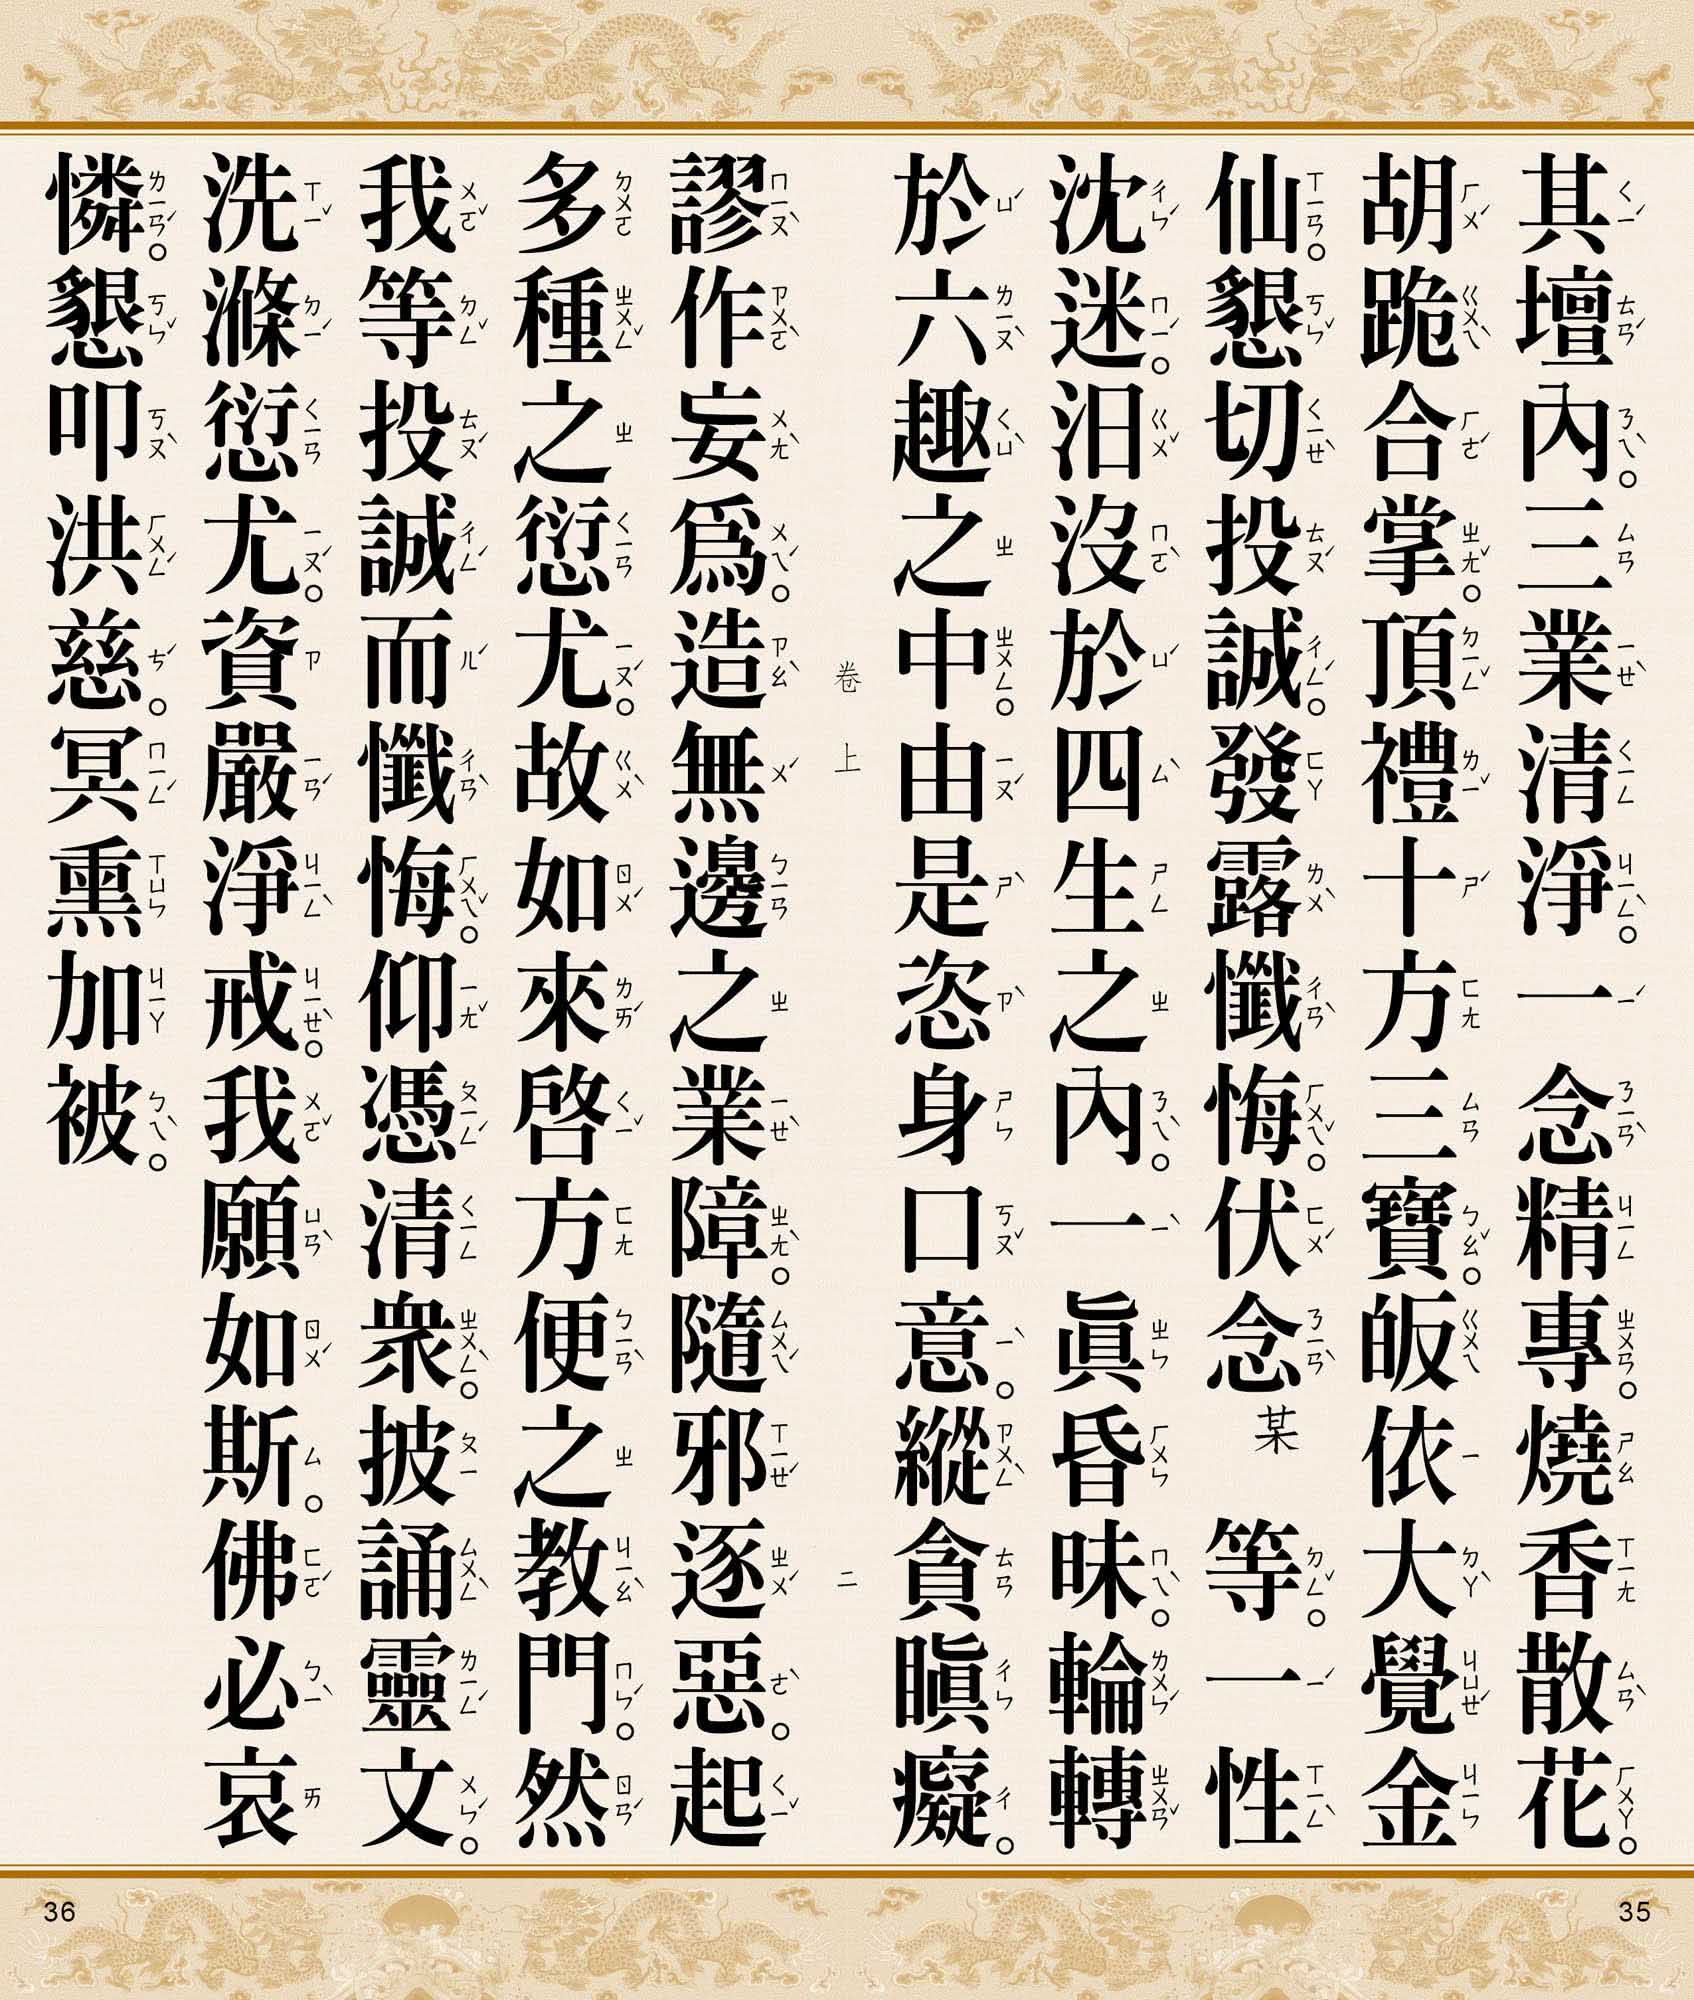 其壇內。三業清淨。一念精專。燒香散花。
胡跪合掌。頂禮十方三寶。皈依大覺金
仙。懇切投誠。發露懺悔。伏念某等。一性
沈迷。汨沒於四生之內。一眞昏昧。輪轉
於六趣之中。由是恣身口意。縱貪瞋癡。
卷上 二
謬作妄爲。造無邊之業障。隨邪逐惡。起
多種之愆尤。故如來啓方便之教門。然
我等投誠而懺悔。仰憑清衆。披誦靈文。
洗滌愆尤。資嚴淨戒。我願如斯。佛必哀
憐。懇叩洪慈。冥熏加被。
35
36